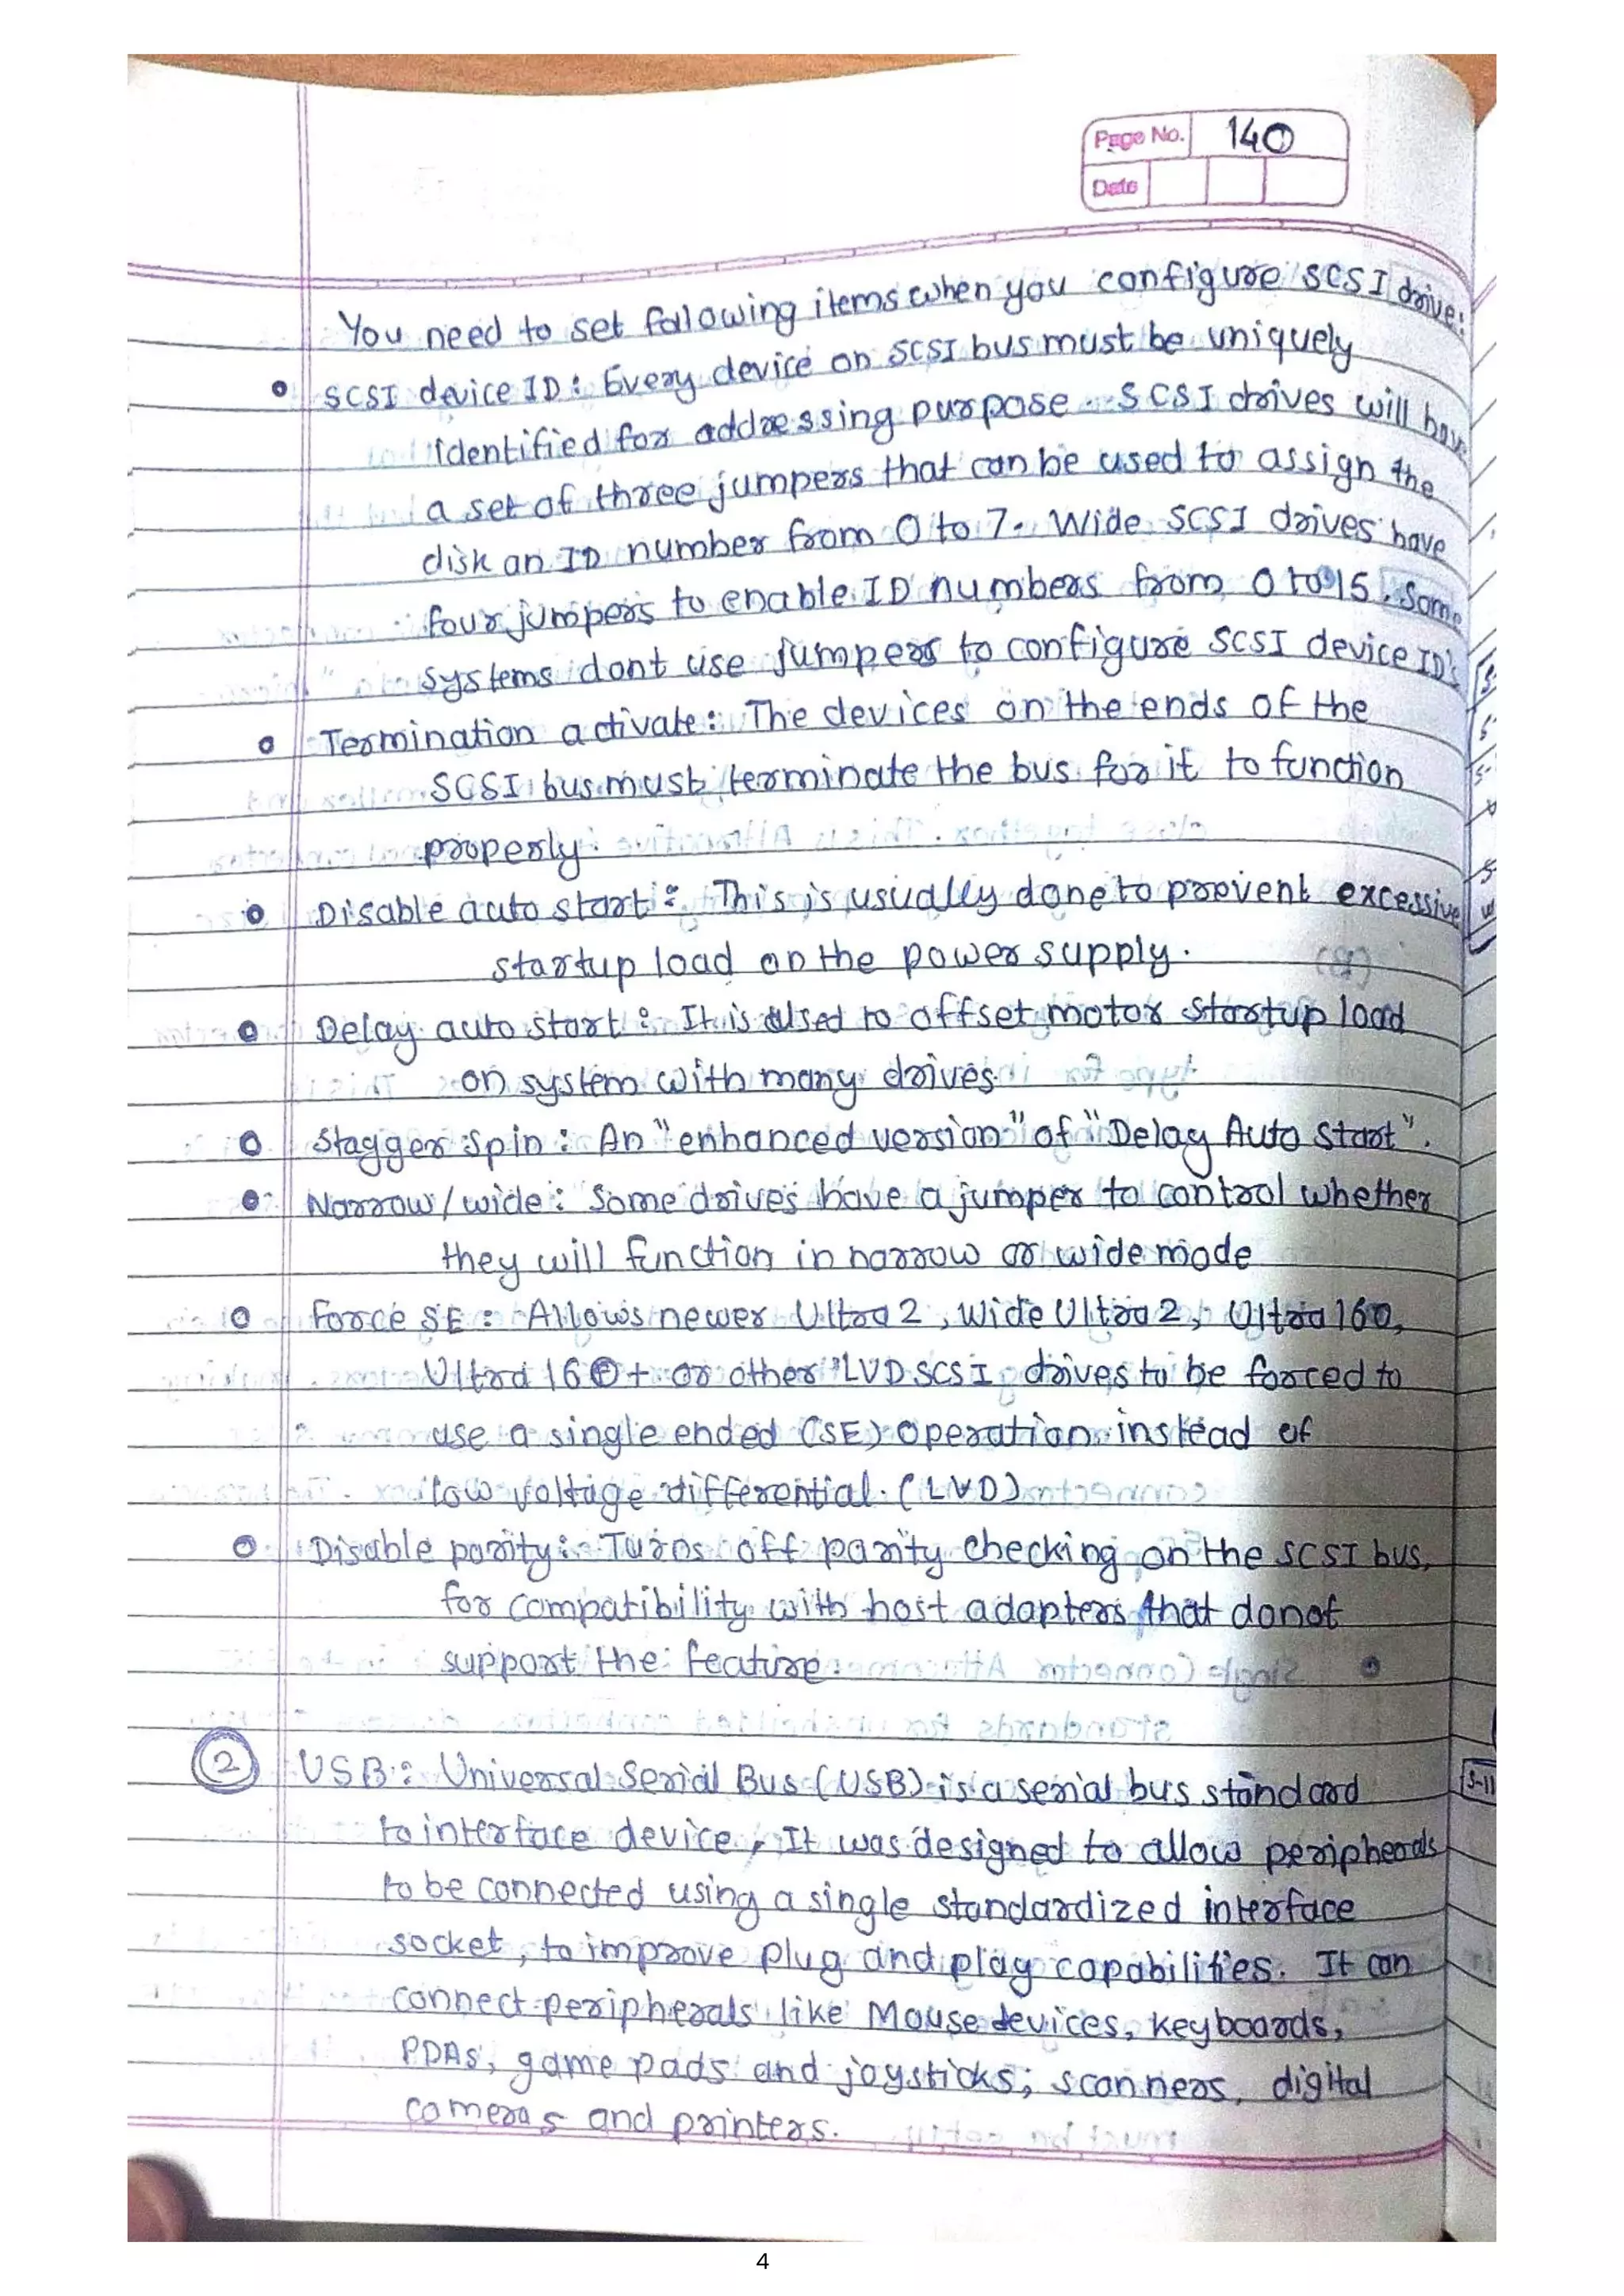 Page No. 140
Date
You need to set following items when you configure SCSI drive:
o SCSI device ID : Every device on SCSI bus must be uniquely
identified for addressing purpose. SCSI drives will have
a set of three jumpers that can be used to assign the
disk an ID number from 0 to 7. Wide SCSI drives have
four jumpers to enable ID numbers from 0 to 15. Some
systems dont use jumpers to configure SCSI device ID's
o Termination activate : The devices on the ends of the
SCSI bus must terminate the bus for it to function
properly.
o Disable auto start : This is usually done to prevent excessive
startup load on the power supply.
o Delay auto start : It is used to offset motor startup load
on system with many drives
o Stagger Spin : An "enhanced version" of "Delay Auto Start".
o Narrow/wide : Some drives have a jumper to control whether
they will function in narrow or wide mode
o Force SE : Allows newer Ultra 2, Wide Ultra 2, Ultra 160,
Ultra 160+ or other LVD SCSI drives to be forced to
use a single ended (SE) operation instead of
low voltage differential. (LVD)
o Disable parity : Turns off parity checking on the SCSI bus,
for compatibility with host adapters that donot
support the feature.
2 USB : Universal Serial Bus (USB) is a serial bus standard
to interface device, It was designed to allow peripherals
to be connected using a single standardized interface
socket, to improve plug and play capabilities. It can
connect peripherals like Mouse devices, keyboards,
PDAs, game pads and joysticks, scanners, digital
cameras and printers.
4